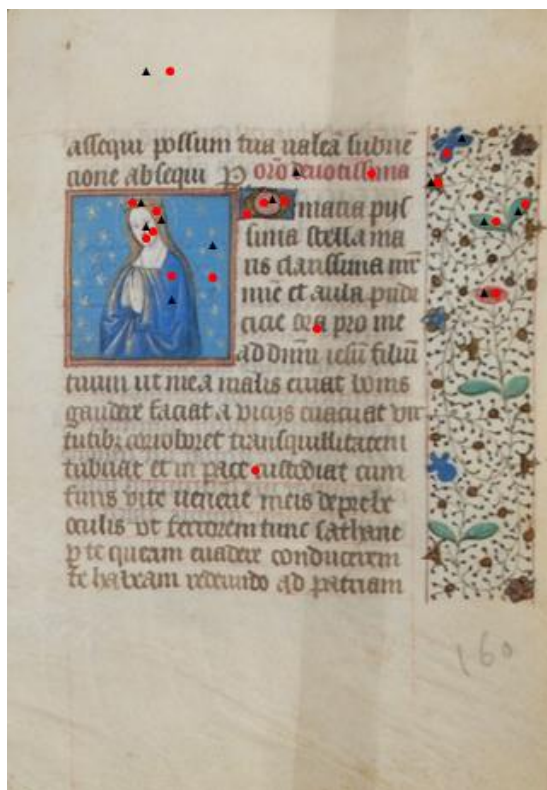 assequi possum tua valeā subuē
cione absequi P orō deuotissima
O maria pijs
sima stella ma
ris clarissima
et aula pudi
cicie ora pro me
ad dnm ilesu filiū
tuum ut me a malis eruat bonis
gaudere faciat a vicijs euacuat vir
tutibꝫ corroboret tranquillitatem
tribuat et in pace custodiat cum
finis vite uenerit meis
oculis ut terrorem tunc sathane
te queam euadere conductorem
te habeam redeundo ad patriam
160